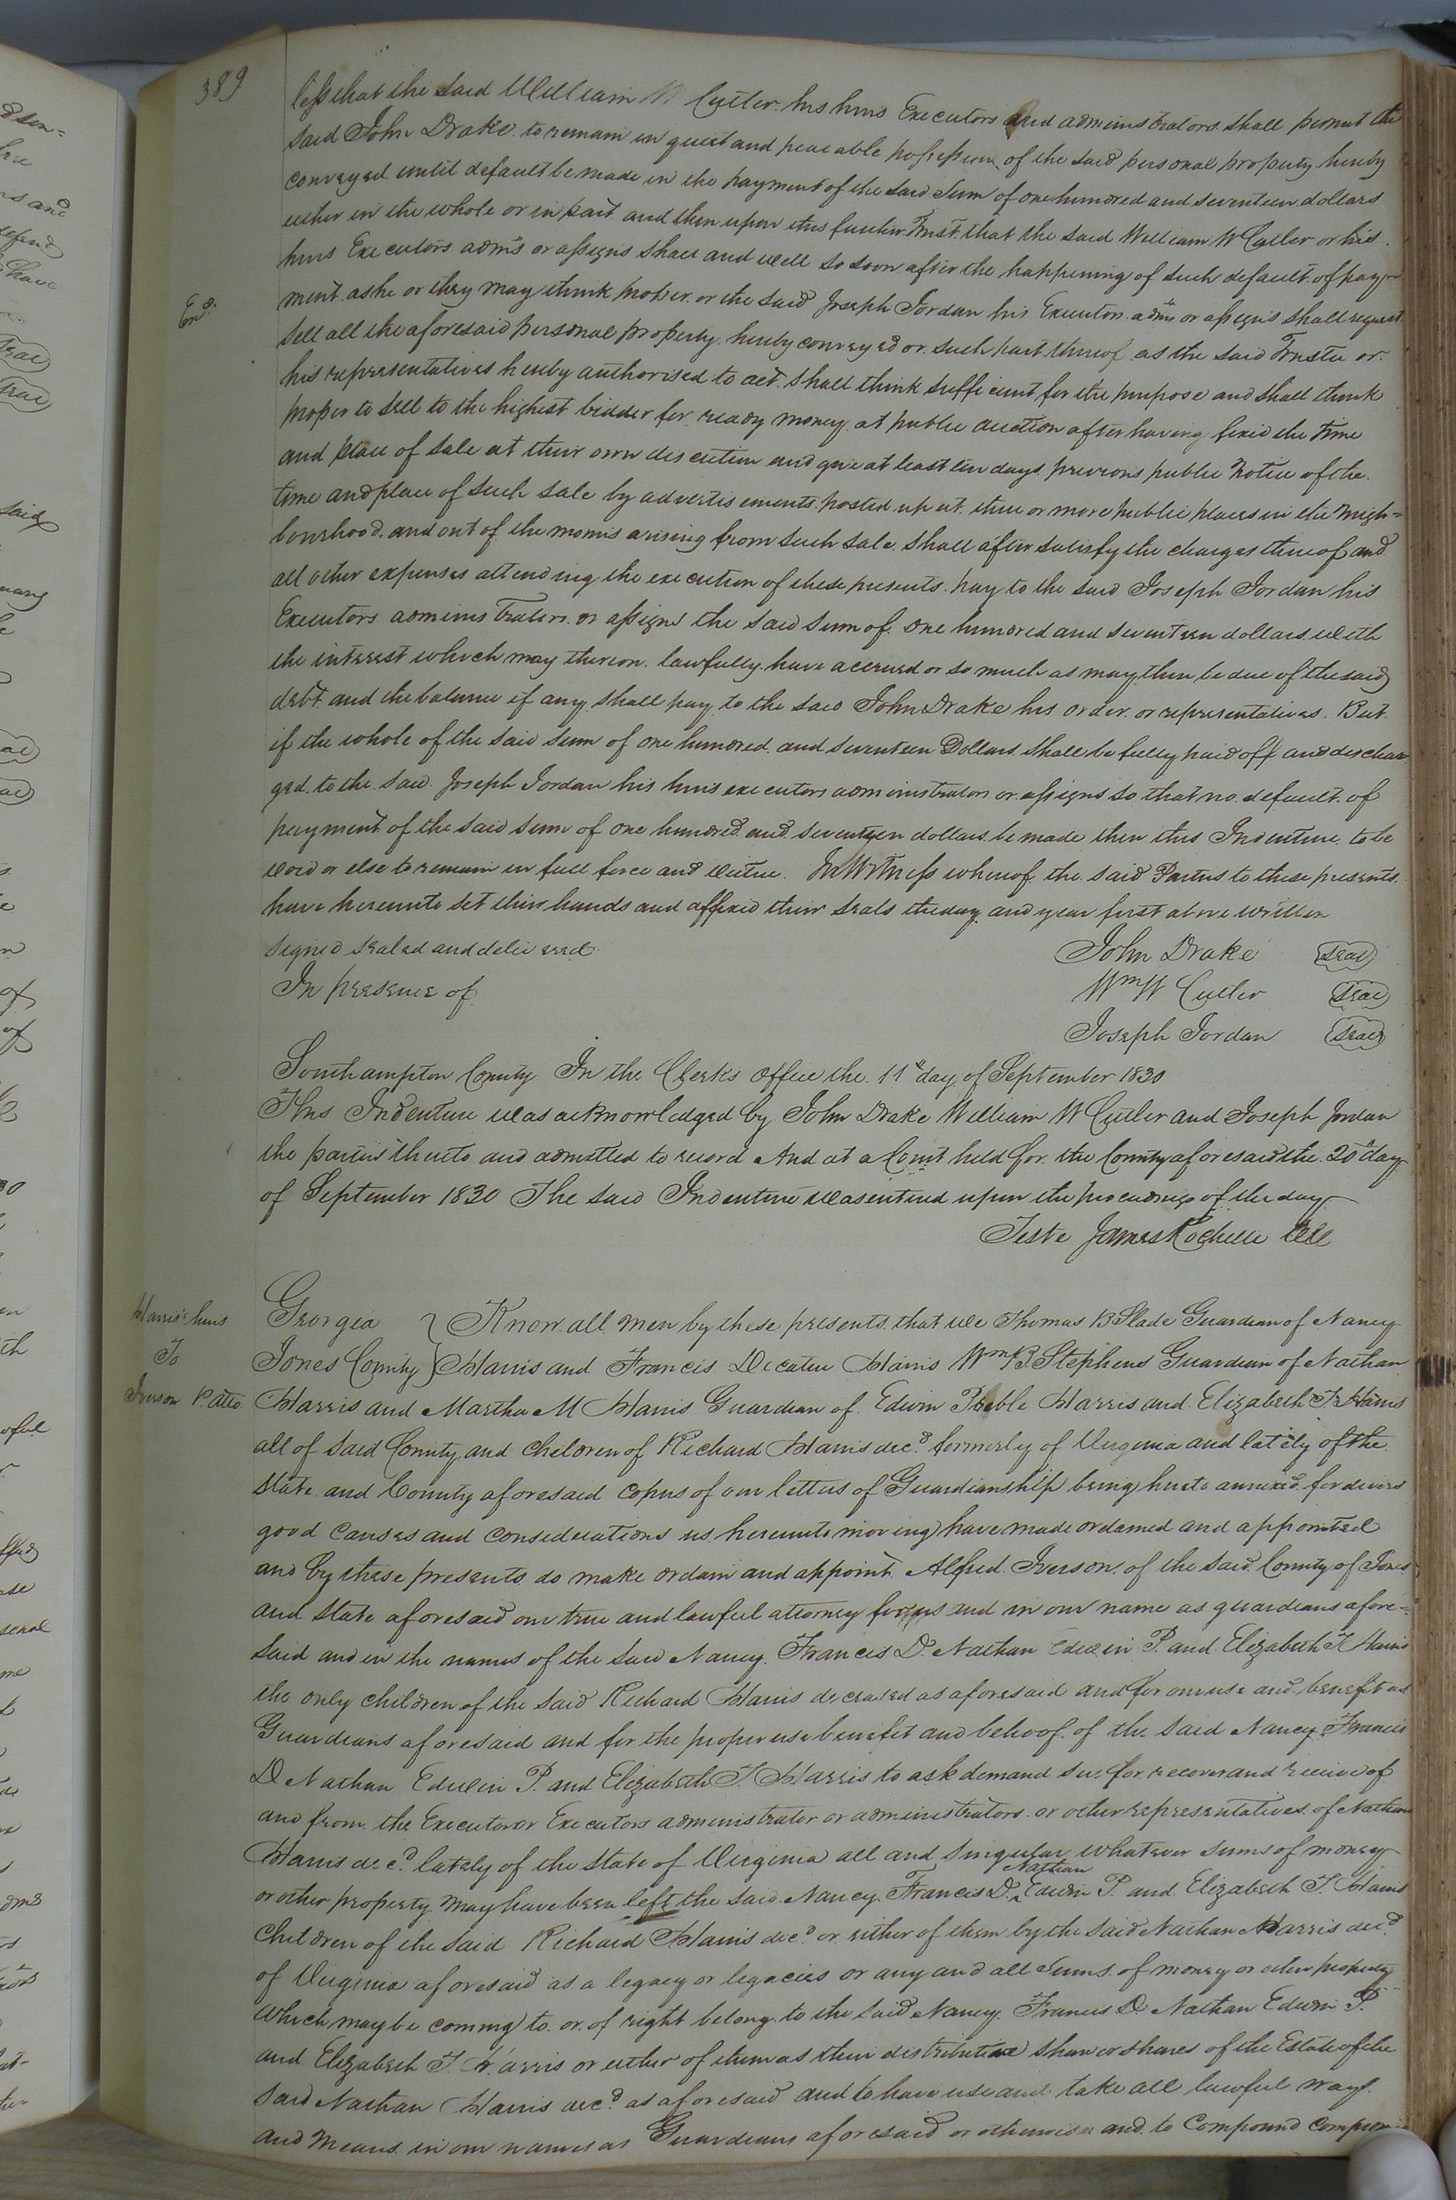 389
less that the said William W Cutler his heirs Executors and administrators shall permit the
said John Drake to remain in quiet and peaceable possession of the said personal property hereby
conveyed until default be made in the payment of the said Sum of one hundred and seventeen dollars
either in the whole or in part and then upon this further Trust that the said William W Cutler or his
heirs Executors adms or assigns shall and will so soon after the happening of such default of pay-
Exd.
ment as he or they may think proper or the said Joseph Jordan his Executors adms or assigns shall request
sell all the aforesaid personal property hereby conveyed or such part thereof as the said Trustee or
his representatives hereby authorised to act shall think sufficient for the purpose and shall think
proper to sell to the highest bidder for ready money at public auction after having fixed the time
and place of sale at their own discretion and give at least ten days previous public notice of the
time and place of such sale by advertisements posted up at three or more public places in the neigh=
bourhood and out of the monies arising from such sale shall after satisfy the charges thereof and
all other expenses attending the execution of these presents pay to the said Joseph Jordan his
Executors administrators or assigns the said sum of one hundred and seventeen dollars with
the interest which may thereon lawfully have accrued or so much as may then be due of the said
debt and the balance if any shall pay to the said John Drake his order or representatives. But
if the whole of the said sum of one hundred and seventeen Dollars shall be fully paid off and dischar
ged to the said Joseph Jordan his heirs executors administrators or assigns so that no default of
payment of the said sum of one hundred and seventeen dollars be made then this Indenture to be
void or else to remain in full force and virtue. In Witness whereof the said Parties to these presents
have hereunto set their hands and affixed their seals the day and year first above written
signed sealed and delivered
John Drake Seal
In presence of
Wm W Cutler Seal
Joseph Jordan Seal
Southampton County In the Clerks Office the 11th day of September 1830
This Indenture was acknowledged by John Drake William W Cutler and Joseph Jordan
the parties thereto and admitted to record And at a Court held for the County aforesaid the 20th day
of September 1830 The said Indenture was entered upon the proceedings of the day
Teste James Rochelle
Harris's heirs
To
Iverson P. atto
Georgia } Know all men by these presents that we Thomas B Slade Guardian of Nancy
Jones County } Harris and Francis Decatur Harris Wm B Stephens Guardian of Nathan
Harris and Martha M Harris Guardian of Edwin Preble Harris and Elizabeth T Harris
all of said County and children of Richard Harris decd. formerly of Virginia and lately of the
State and County aforesaid copies of our letters of Guardianship being hereto annexed for divers
good causes and considerations us hereunto moving have made ordained and appointed
and by these presents do make ordain and appoint Alfred Iverson of the said County of Jones
and State aforesaid our true and lawful attorney for us and in our name as guardians afore-
said and in the names of the said Nancy Francis D. Nathan Edwin P. and Elizabeth T Harris
the only children of the said Richard Harris deceased as aforesaid and for our use and benefit as
Guardians aforesaid and for the proper use benefit and behoof of the said Nancy Francis
D Nathan Edwin P. and Elizabeth T. Harris to ask demand sue for recover and receive of
and from the Executor or Executors administrator or administrators or other representatives of Nathan
Harris decd. lately of the State of Virginia all and singular whatever sums of money
or other property may have been left the said Nancy Francis D. Nathan Edwin P. and Elizabeth T. Harris
children of the said Richard Harris decd. or either of them by the said Nathan Harris decd.
of Virginia aforesaid as a legacy or legacies or any and all Sums of money or other property
which may be coming to or of right belong to the said Nancy Francis D. Nathan Edwin P.
and Elizabeth T. Harris or either of them as their distributive share or shares of the Estate of the
said Nathan Harris decd. as aforesaid and to have use and take all lawful ways
and means in our names as Guardians aforesaid or otherwise and to Compound